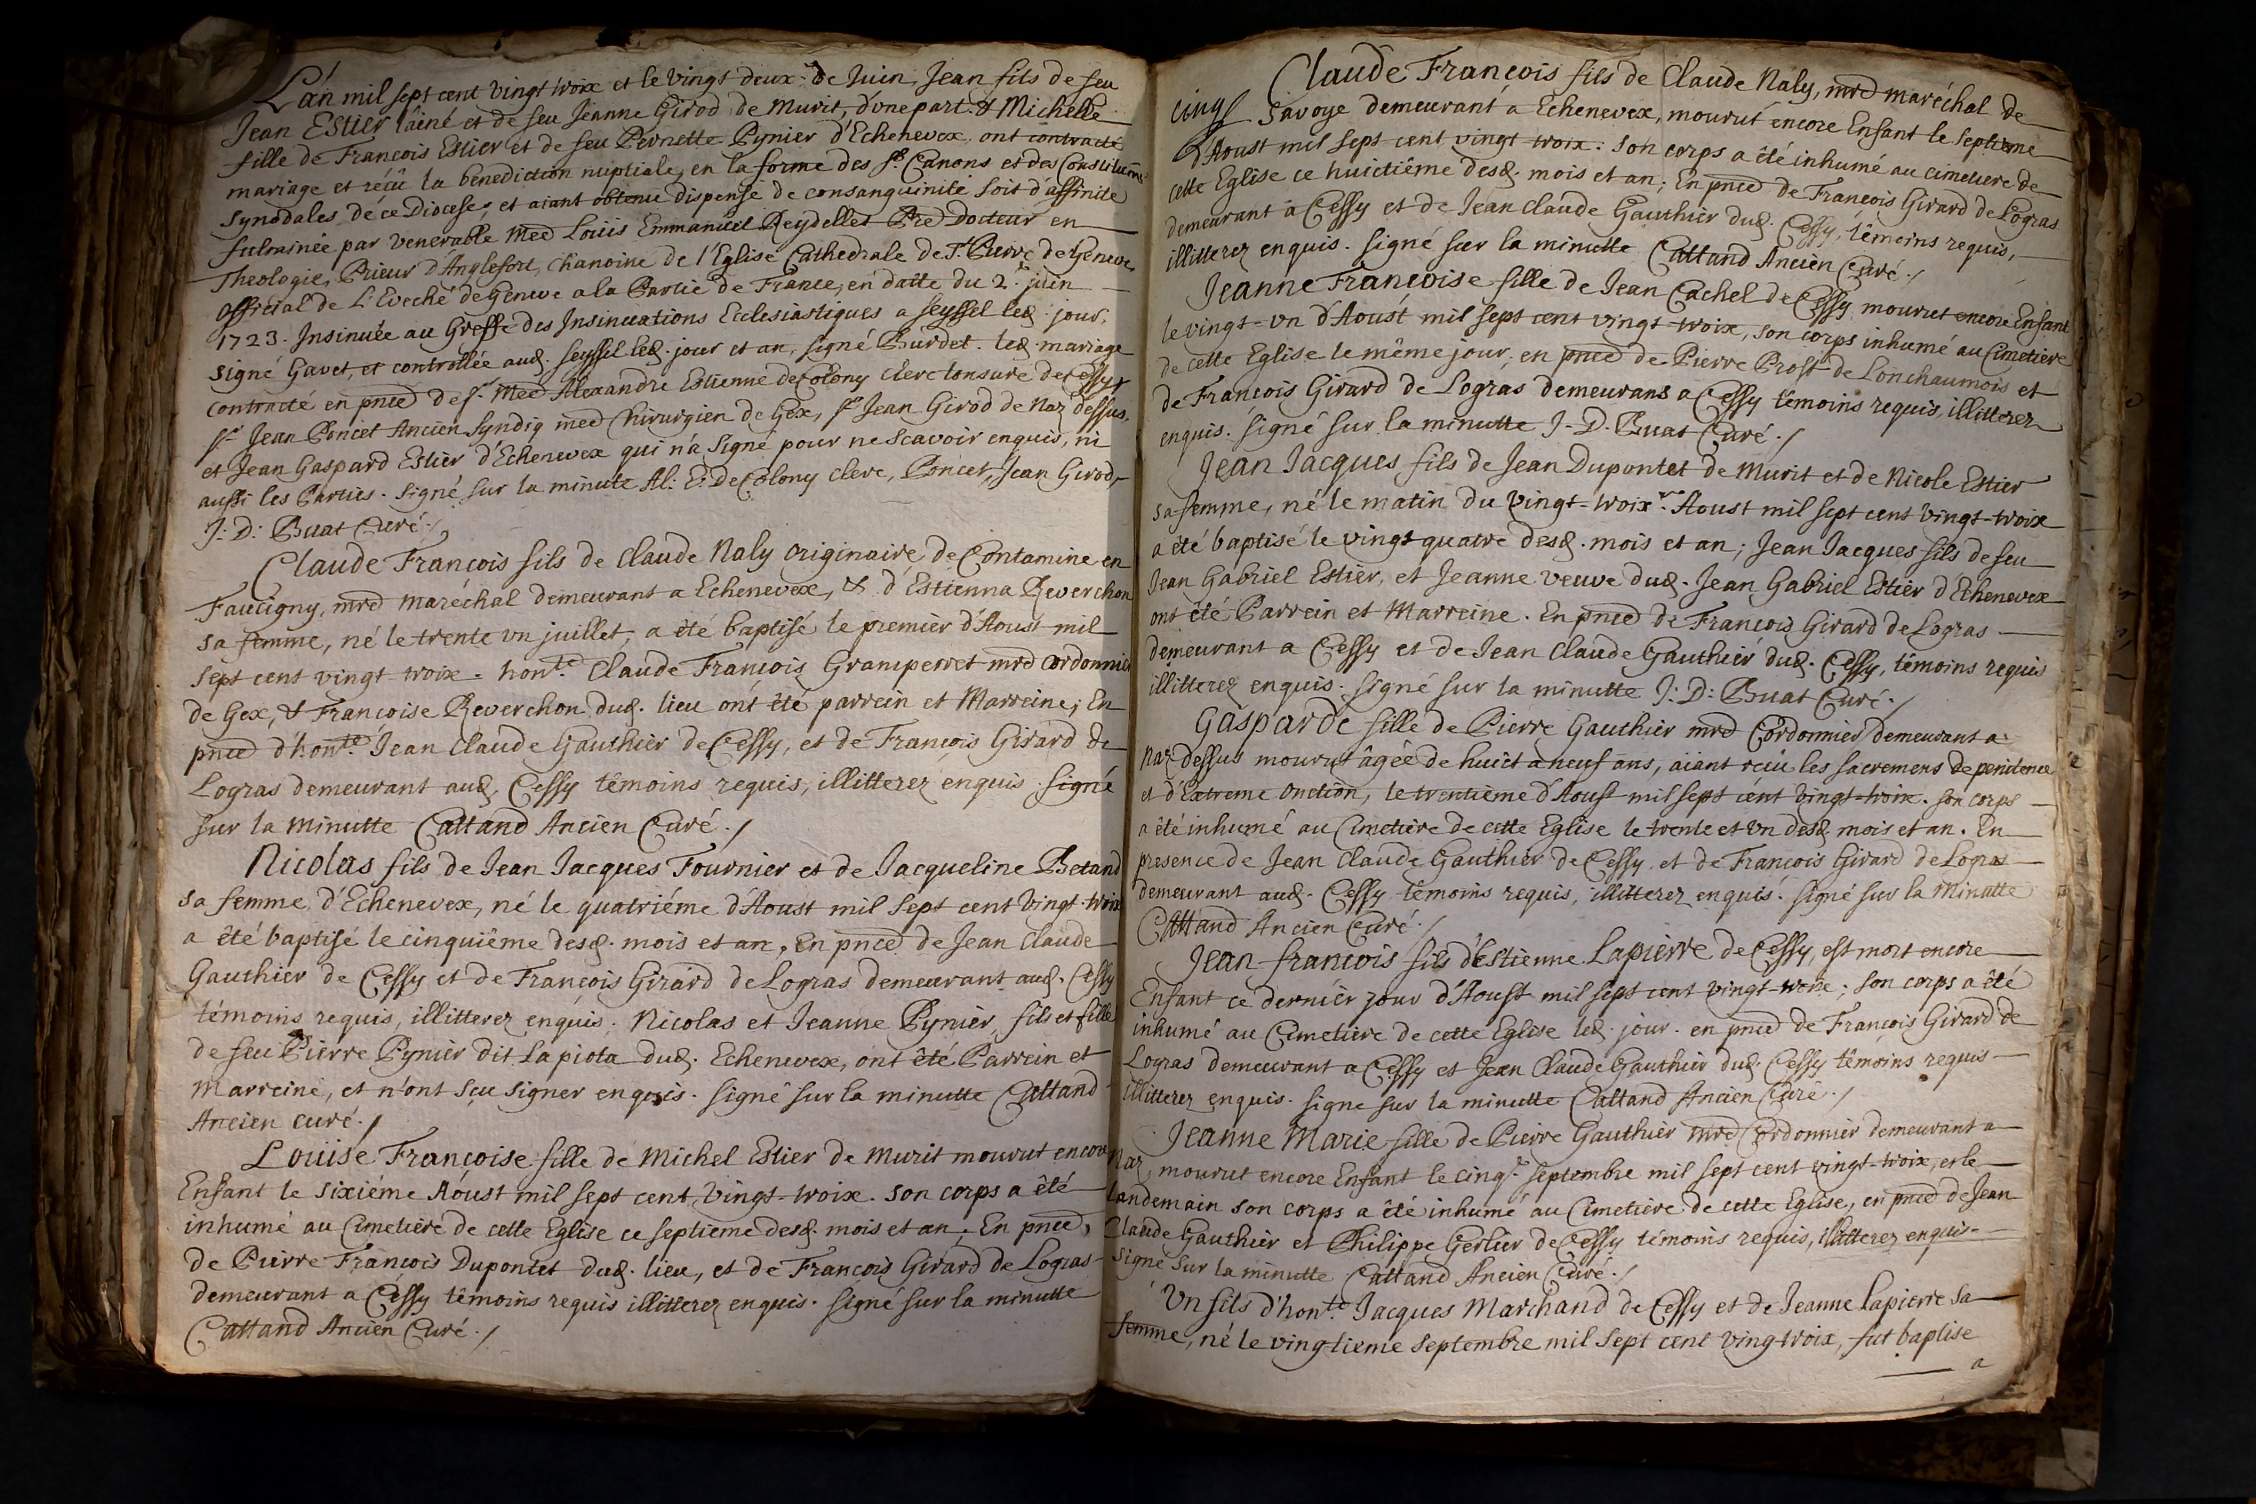 L'an mil sept cent vingt troix et le vingt deux de Juin, Jean fils de feu
Jean Estier l'ainé et de feu Jeanne Girod de Murit, d'vne part & Michelle
fille de François Estier et de feu Pernette Pynier d'Echenevex ont contracté
mariage et réçû la benediction nuptiale, en la forme des Sts. Canons et des Constitutions
Synodales de ce Diocese, et aiant obtenu dispense de consanguinité soit d'affinité
fulminée par venerable Mre Loüis Emmanuel Reydellet Pre Docteur en
Theologie, Prieur d'Anglefort, Chanoine de l'Eglise Cathedrale de St. Pierre de Geneve
Official de L'Eveché de Geneve a la Partie de France, en datte du 2. juin
1723. Insinuée au Greffe des Insinuations Ecclesiastiques a Seyssel led. jour,
signé Gavet, et controllée aud. Seyssel led. jour et an, signé Burdet. led. mariage
contracté en pnce de Sr. Mre Alexandre Estienne de Colony clerc tonsuré de Cessy
Sr Jean Poncet Ancien Syndiq med Chirurgien de Gex, Sr Jean Girod de Naz dessus,
et Jean Gaspard Estier d'Echenevex qui n'a signé pour ne scavoir enquis, ni
aussi les Parties. Signé sur la minute Al: E: De Colony clerc, Poncet, Jean Girod,
J: D: Buat Curé./
Claude François fils de Claude Naly originaire de Contamine en
Faucigny, mre maréchal demeurant a Echenevex, & d'Estienna Reverchon
sa femme, né le trente vn juillet, a été baptisé le premier d'Aoust mil
sept cent vingt troix. honte. Claude François Gramperret mre Cordonnier
de Gex, & Francoise Reverchon dud. lieu ont été parrein et Marreine; En
pnce d'honte. Jean Claude Gauthier de Cessy, et de François Girard de
Logras demeurant aud. Cessy têmoins requis, illitterez enquis. Signé
sur la minutte Cattand Ancien Curé./
Nicolas fils de Jean Jacques Fournier et de Jacqueline Betand
sa femme d'Echenevex, né le quatriéme d'Aoust mil sept cent vingt-troix
a été baptisé le cinquiême desd. mois et an, En pnce de Jean Claude
Gauthier de Cessy et de François Girard de Logras demeurant aud. Cessy
témoins requis, illitterez enquis. Nicolas et Jeanne Pynier, fils et fille
de feu Pierre Pynier dit Lapiota dud. Echenevex, ont êté Parrein et
Marreine, et n'ont sçu signer enquis. Signé sur la minutte Cattand
Ancien curé./
Loüise Françoise fille de Michel Estier de Murit mourut encore
Enfant le sixiéme Aoust mil sept cent vingt-troix. son corps a êté
inhumé au Cimetiere de cette Eglise ce septieme desd. mois et an; En pnce
de Pierre François Dupontet dud. lieu, et de François Girard de Logras
demeurant a Cessy têmoins requis illitterez enquis. signé sur la minutte
Cattand Ancien Curé./
Claude François fils de Claude Naly, mre maréchal de
cinq
Savoye demeurant a Echenevex, mourut encore Enfant le septieme
d'Aoust mil sept cent vingt troix. son corps a êté inhumé au cimetiere de
cette Eglise ce huictiême desd. mois et an; En pnce de François Girard de Logras
demeurant a Cessy et de Jean Claude Gauthier dud. Cessy, têmoins requis,
illitterez enquis. signé sur la minutte Cattand Ancien Curé./
Jeanne Françoise fille de Jean Cachel de Cessy mourut encore Enfant
le vingt-vn d'Aoust mil sept cent vingt-troix, son corps inhumé au Cimetiere
de cette Eglise le même jour, en pnce de Pierre Prost de Lonchaumois et
de François Girard de Logras demeurans a Cessy têmoins requis, illitterez
enquis. signé sur la minutte J. D. Buat Curé./
Jean Jacques fils de Jean Dupontet de Murit et de Nicole Estier
sa femme, né le matin du vingt-troix. Aoust mil sept cent vingt-troix
a été baptisé le vingt quatre desd. mois et an; Jean Jacques fils de feu
Jean Gabriel Estier, et Jeanne veuve dud. Jean Gabriel Estier d'Echenevex
ont été Parrein et Marreine. En pnce de François Girard de Logras
demeurant a Cessy et de Jean Claude Gauthier dud. Cessy, têmoins requis
illitterez enquis. signé sur la minutte J: D: Buat Curé./
Gasparde fille de Pierre Gauthier mre Cordonnier demeurant a
Naz dessus mourut âgée de huict a neuf ans, aiant reçu les sacremens de penitence
et d'Extreme Onction, le trentième d'Aoust mil sept cent vingt-troix. son corps
a été inhumé au Cimetiere de cette Eglise le trente et vn desd. mois et an. En
presence de Jean Claude Gauthier de Cessy et de François Girard de Logras
demeurant aud. Cessy têmoins requis, illitterez enquis. signé sur la Minutte
Cattand Ancien Curé./
Jean françois fils d'Estienne Lapierre de Cessy, est mort encore
Enfant ce dernier jour d'Aoust mil sept cent vingt-troix; son corps a êté
inhumé au Cimetiere de cette Eglise led. jour. en pnce de François Girard de
Logras demeurant a Cessy et Jean Claude Gauthier dud. Cessy têmoins requis
illitterez enquis. signe sur la minutte Cattand Ancien Curé./
Jeanne Marie fille de Pierre Gauthier mre Cordonnier demeurant a
Naz, mourut encore Enfant le cinq. septembre mil sept cent vingt-troix, et le
landemain son corps a êté inhumé au Cimetiere de cette Eglise, en pnce de Jean
Claude Gauthier et Philippe Gerlier de Cessy témoins requis, illitterez enquis.
signé sur la minutte Cattand Ancien Curé./
Vn fils d'honte. Jacques Marchand de Cessy et de Jeanne Lapierre sa
femme, né le vingtieme septembre mil sept cent vingtroix, fut baptise
a